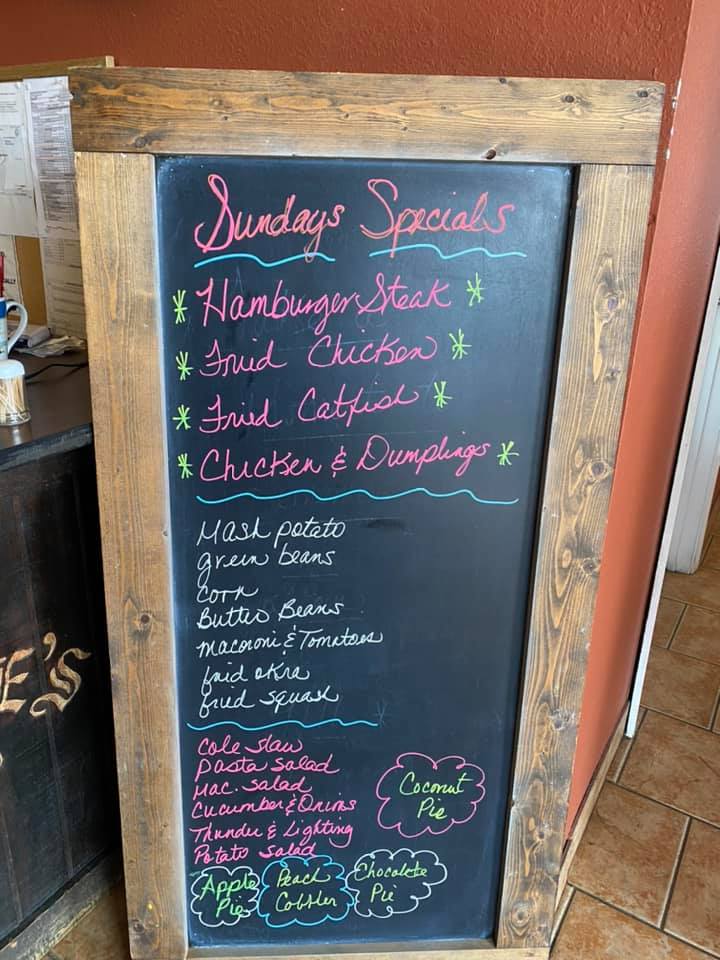 Sundays Specials
Hamburger Steak
Fried Chicken
Fried Catfish
Chicken & Dumplings
Mash potato
green beans
corn
Butter Beans
macoroni & Tomatoes
fried okra
fried squash
Cole slaw
Pasta Salad
Mac. Salad
Cucumber & Onions
Thunder & Lighting
Potato Salad
Coconut
Pie
Apple
Pie
Peach
Cobbler
Chocolate
Pie
E'S